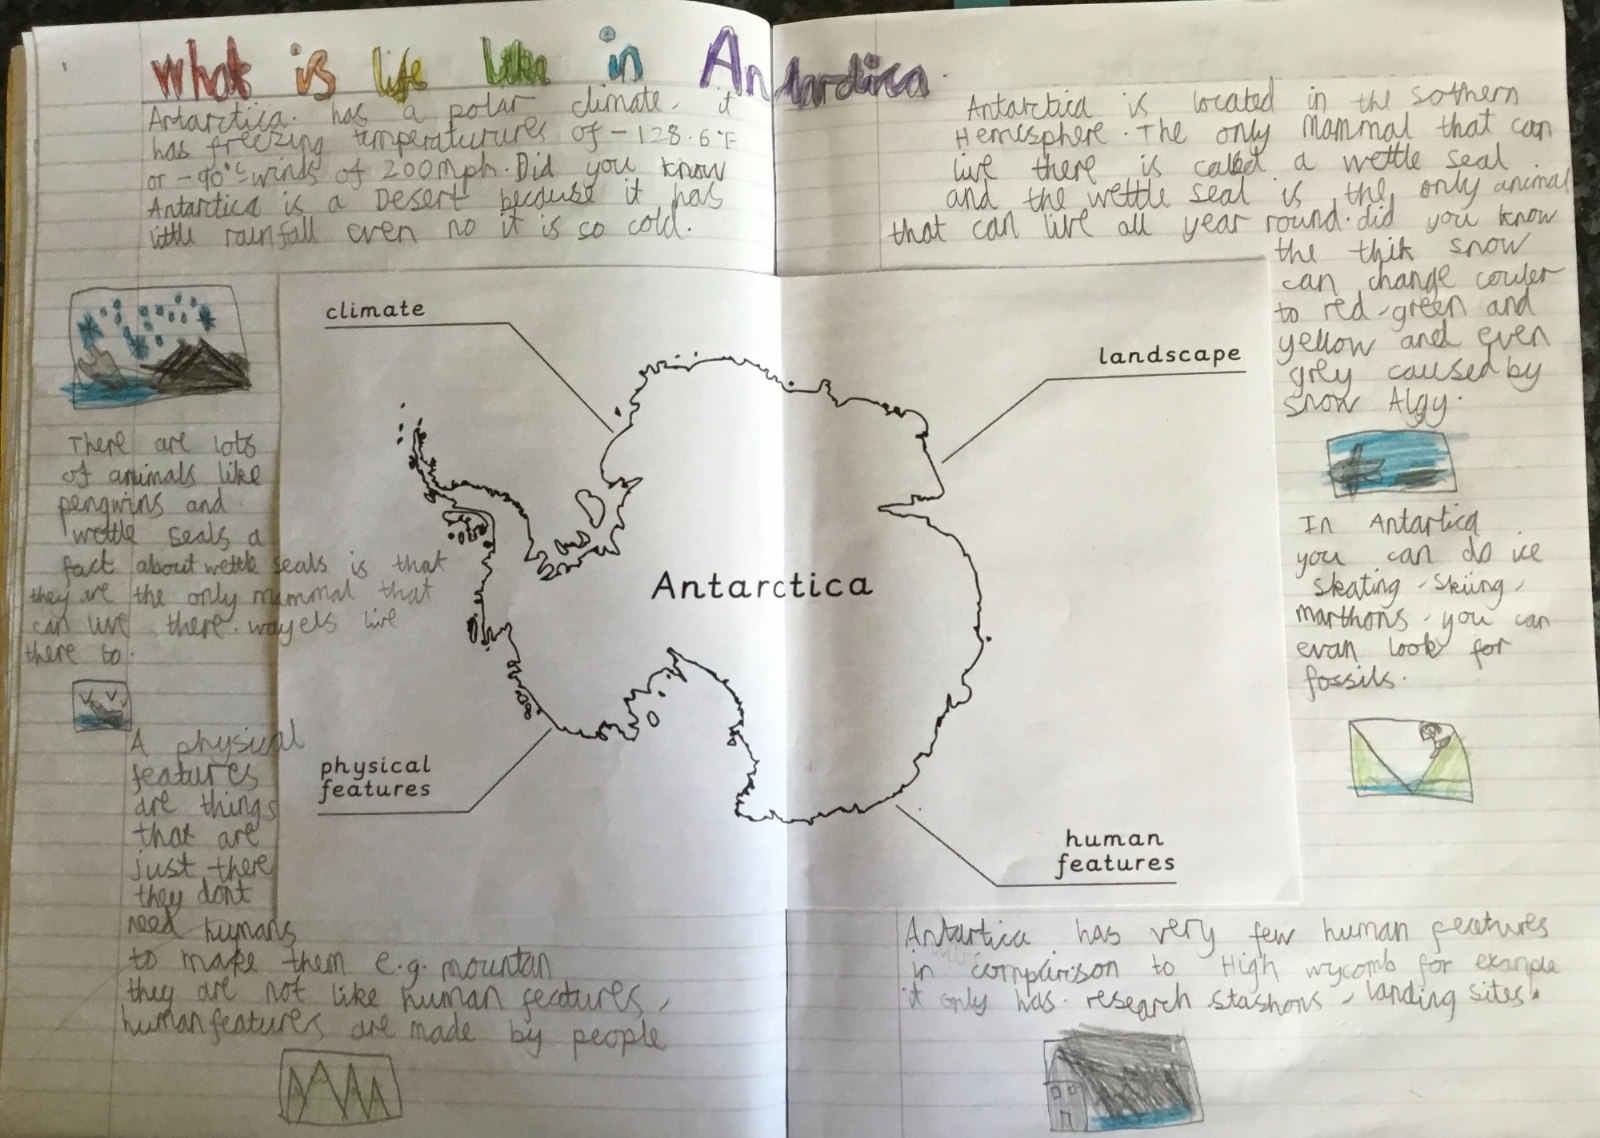 What is life like in Antardica
Antarctica. has a polar climate, it
has freezing temperaturures of -128.6°F
or -90°c winds of 200mph. Did you know
Antarctica is a Desert because it has
little rainfall even no it is so cold.
Antarctica is located in the sothern
Hemisphere. The only mammal that can
live there is called a wettle seal
and the wettle seal is the only animal
that can live all year round. did you know
the thik snow
can change couler
to red, green and
yellow and even
grey caused by
snow Algy.
climate
landscape
There are lots
of animals like
pengwins and
wettle seals a
fact about wettle seals is that
they are the only mammal that
can live there. wayels live
there to.
In Antartica
you can do ice
skating, skiing,
marthons, you can
evan look for
fossils.
Antarctica
A physical
features
are things
that are
just there
they dont
need humans
to make them e.g. mountan
they are not like human features,
human features are made by people
physical
features
human
features
Antartica has very few human features
in comparison to High wycomb for example
it only has research stashons, landing sites.